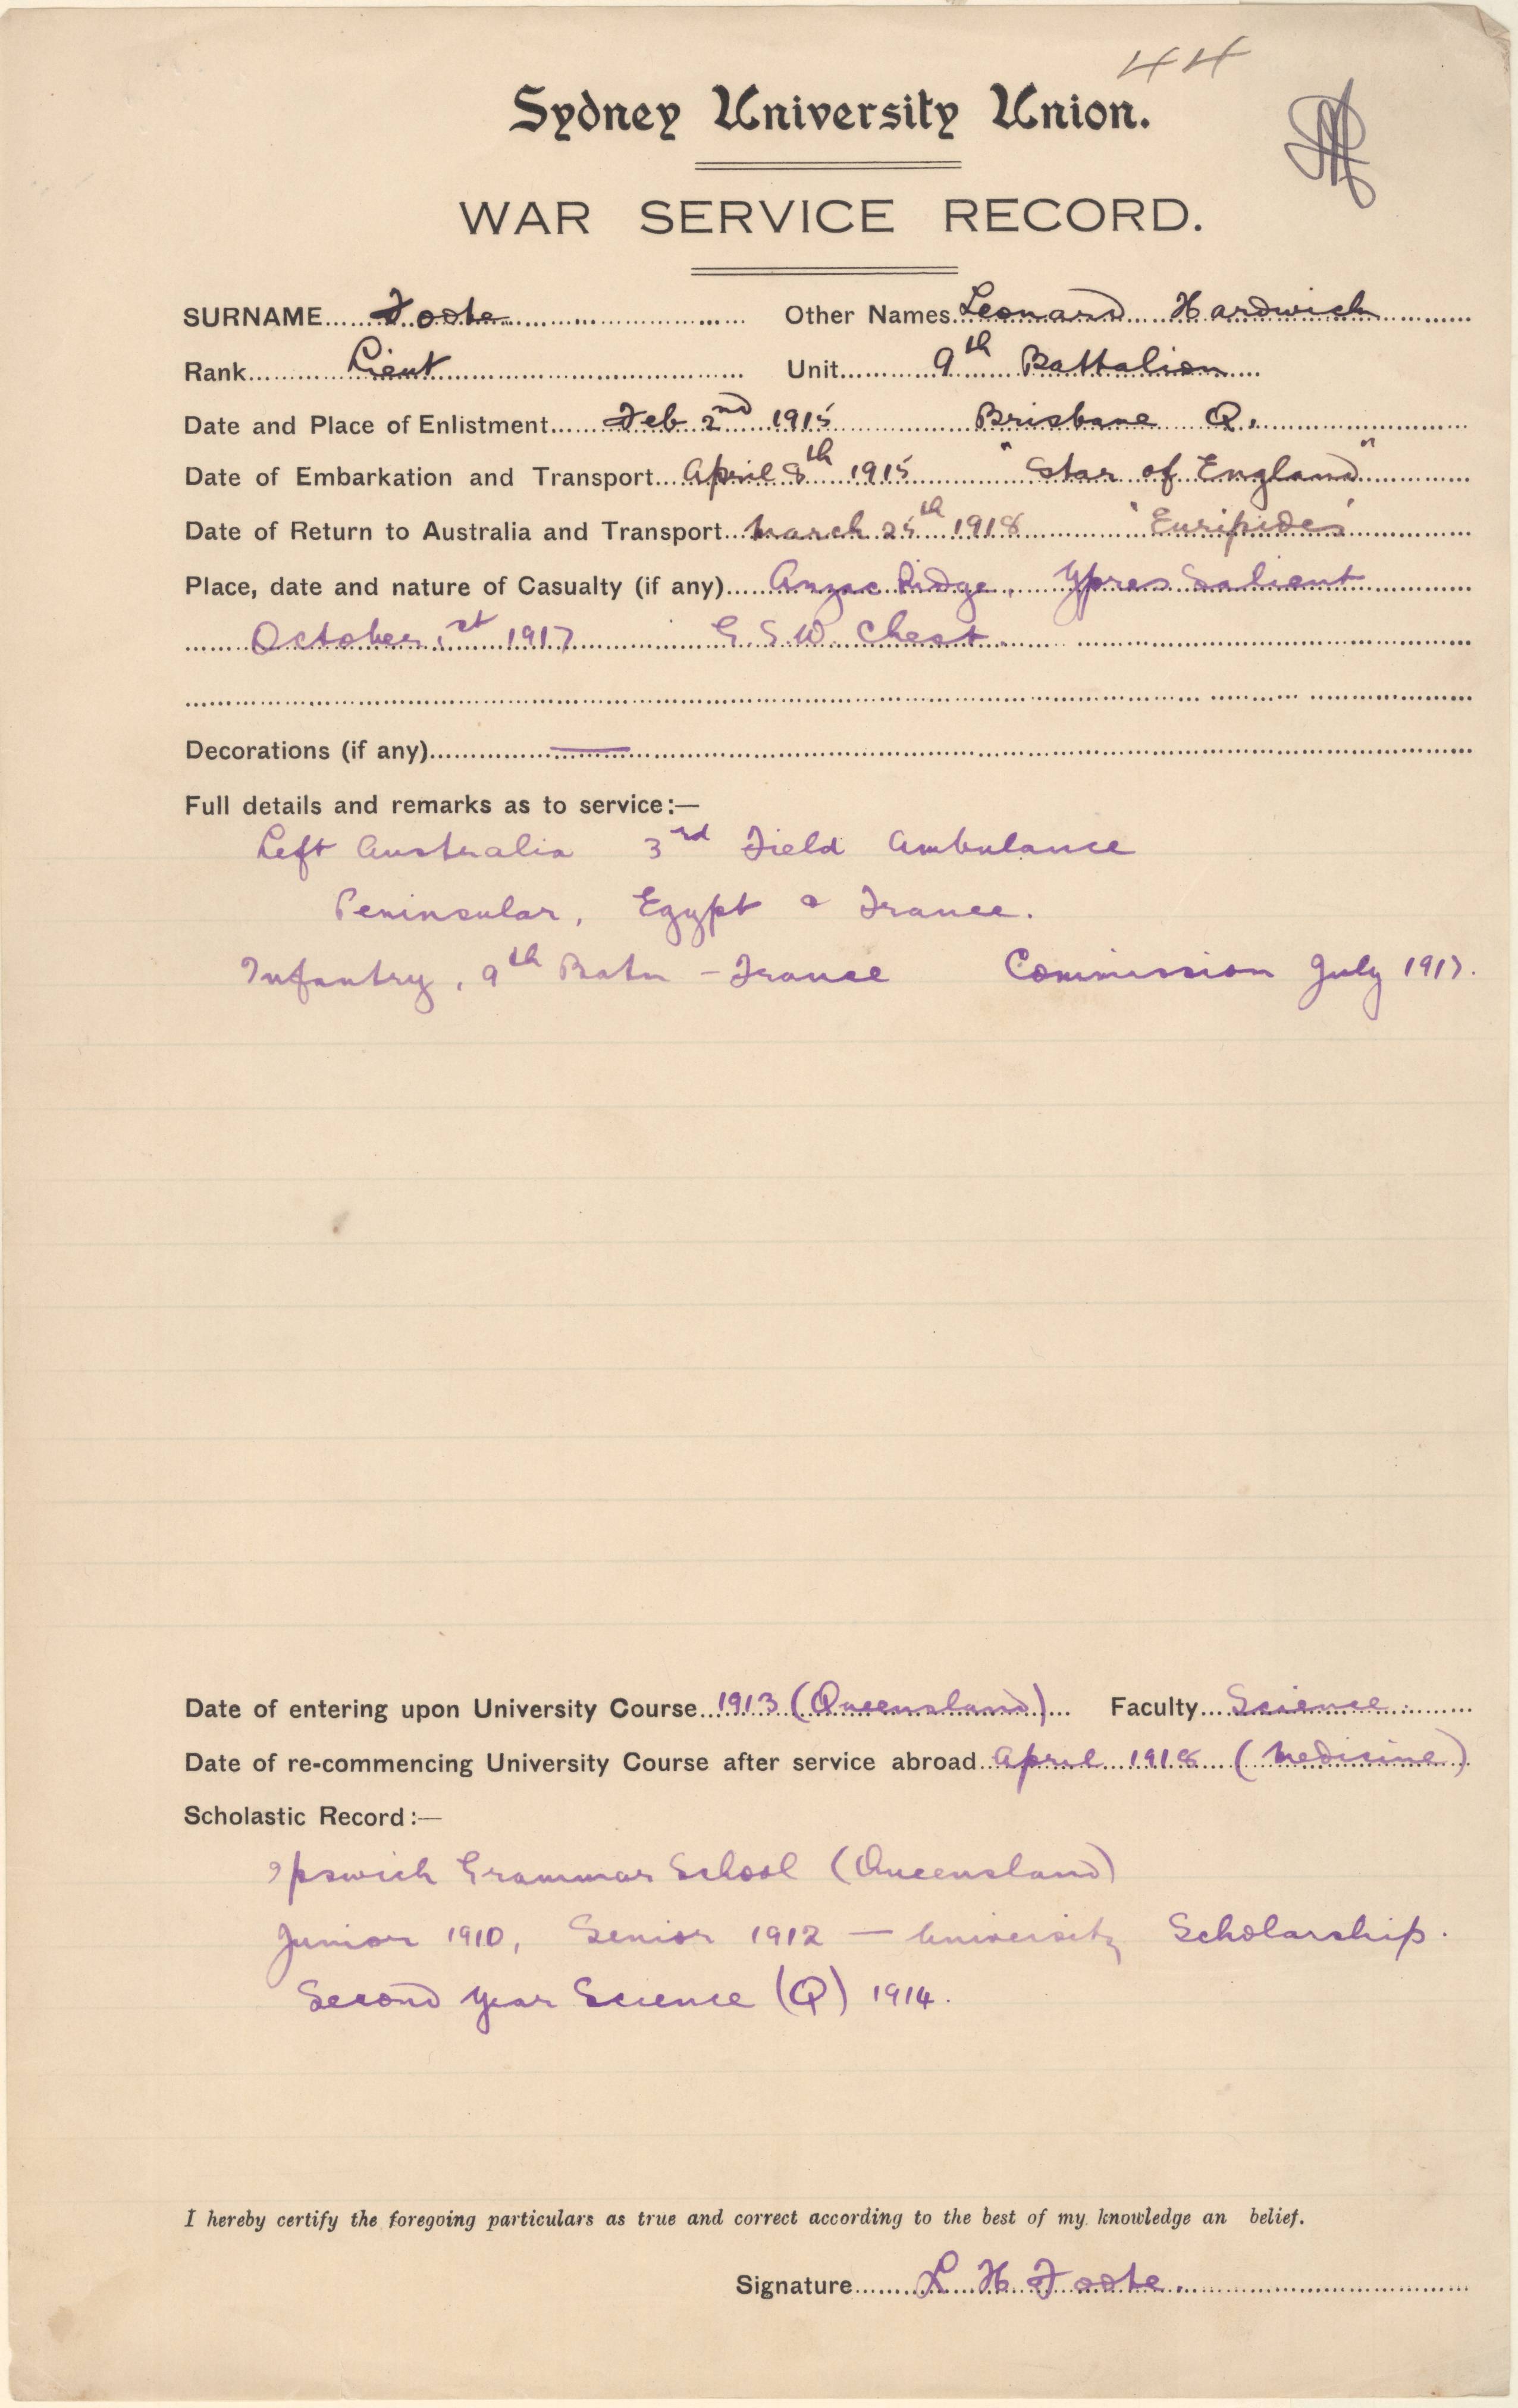 44
Sydney University Union.
WAR SERVICE RECORD.
SURNAME Foote Other Names Leonard Hardwich
Rank Lieut Unit 9th Battalion
Date and Place of Enlistment Feb 2nd 1915 Brisbane Q.
Date of Embarkation and Transport April 8th 1915 "Star of England"
Date of Return to Australia and Transport March 25th 1918 'Euripides'
Place, date and nature of Casualty (if any) Anzac Ridge, Ypres Salient
October 1st 1917 G.S.W. Chest.
Decorations (if any) —
Full details and remarks as to service:—
Left Australia 3rd Field Ambulance
Peninsular, Egypt & France.
Infantry, 9th Batn – France Commission July 1917.
Date of entering upon University Course 1913 (Queensland) Faculty Science
Date of re-commencing University Course after service abroad April 1918 (Medicine)
Scholastic Record:—
Ipswich Grammar School (Queensland)
Junior 1910, Senior 1912 — University Scholarship.
Second Year Science (Q) 1914.
I hereby certify the foregoing particulars as true and correct according to the best of my knowledge an belief.
Signature L H Foote.